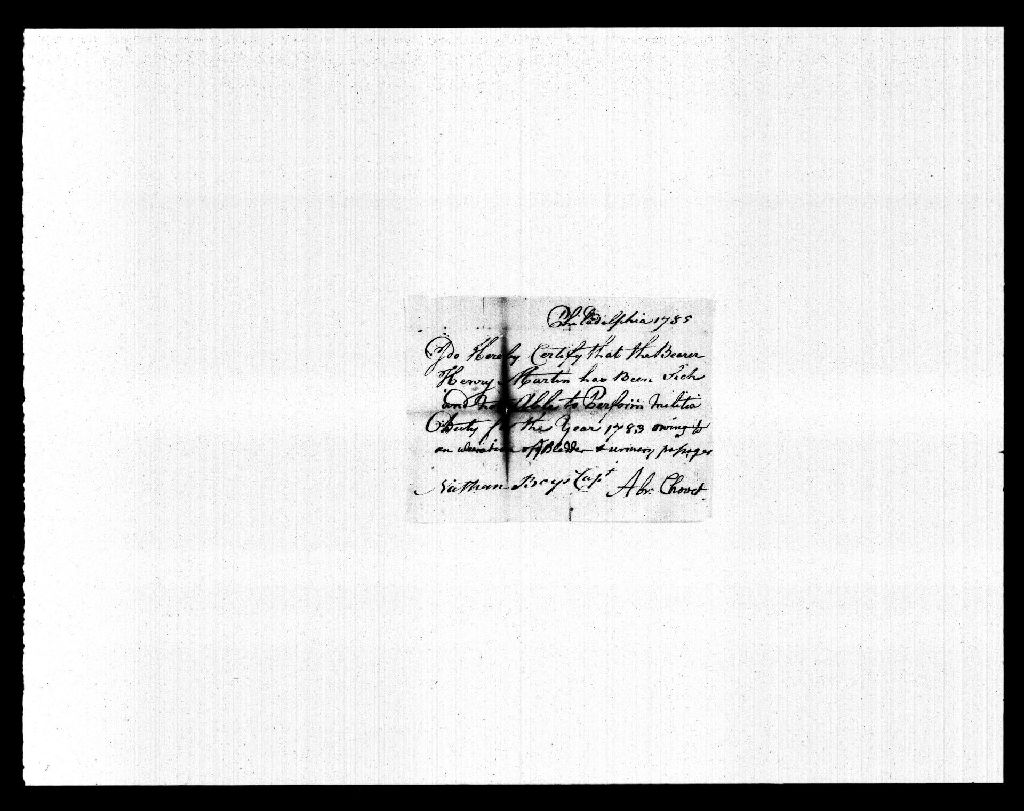 Philadelphia 1785
I do Hereby Certify that the Bearer
Henry Martin has Been Sick
and not Able to Perform Militia
Duty for the Year 1783 owing to
an ulceration of ye Bladder & urinary passages
Nathan Boys Capt Abr. Chovet